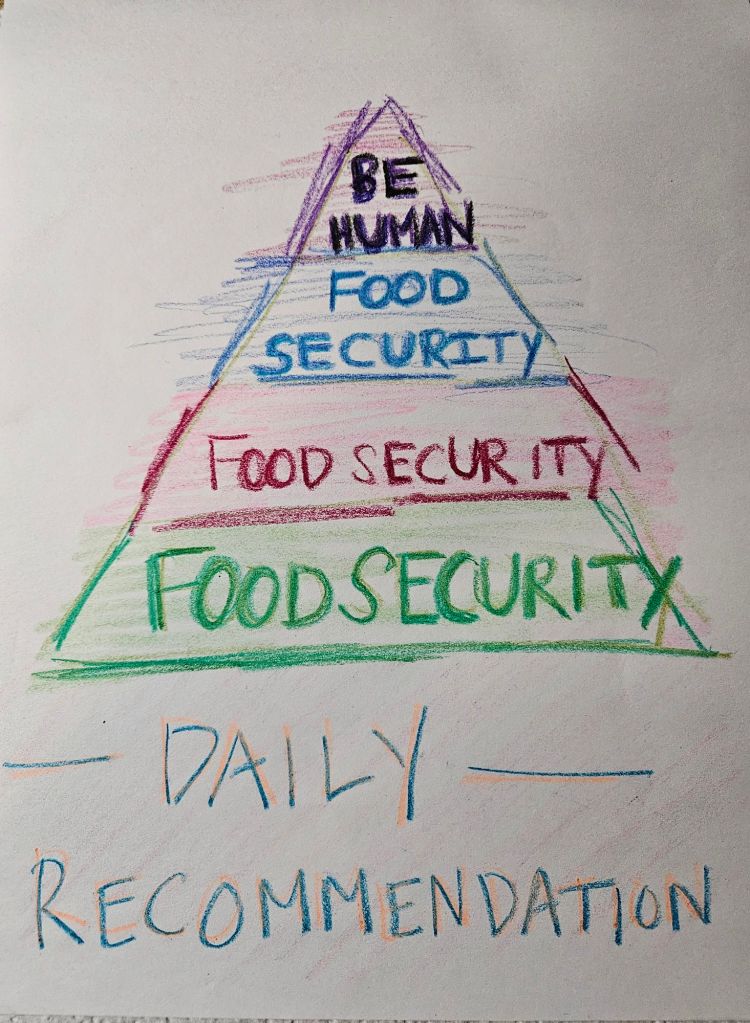 BE
HUMAN
FOOD
SECURITY
FOOD SECURITY
FOOD SECURITY
— DAILY —
RECOMMENDATION